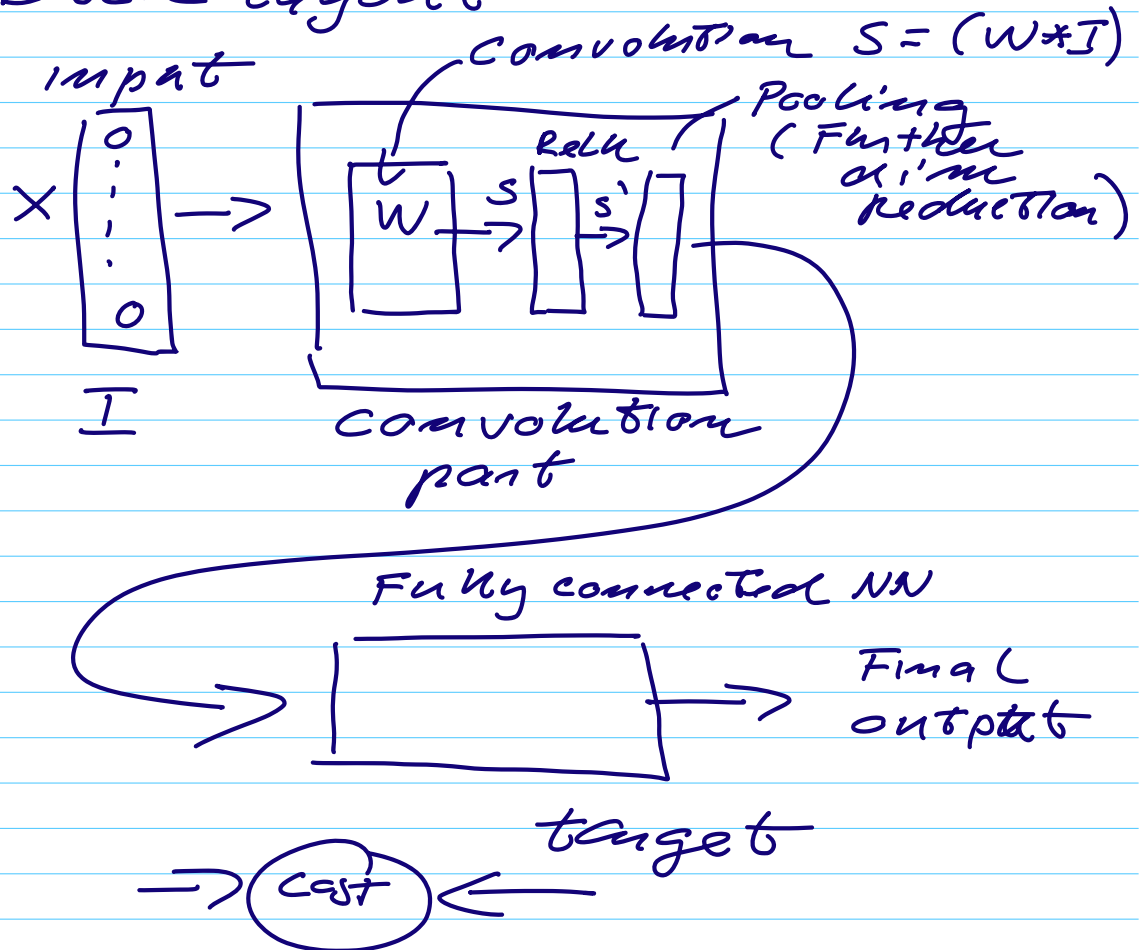 Convolution S = (W*I)
input
Pooling
(Further
dim
reduction)
ReLU
X
W
S
S'
I
Convolution
part
Fully connected NN
Final
output
target
Cost